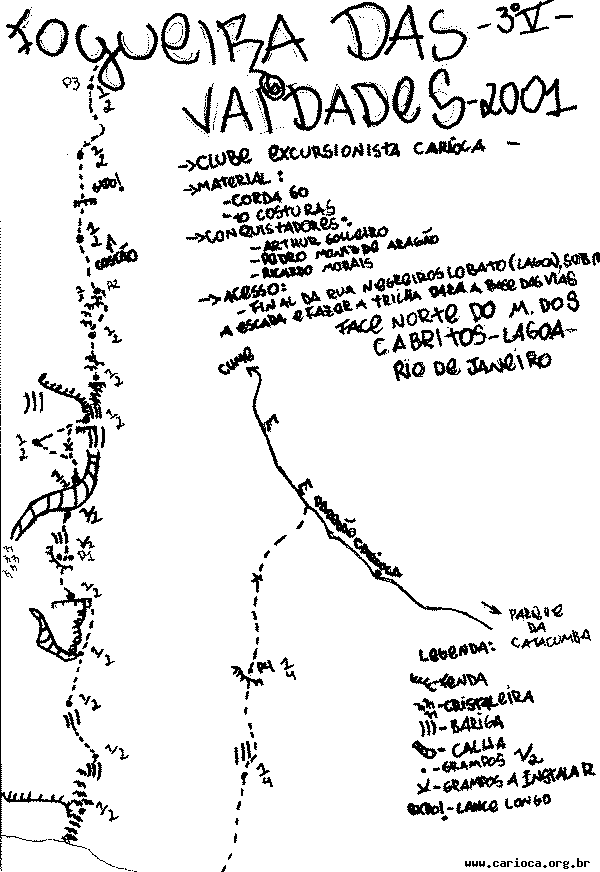 FOGUEIRA DAS - 3º V -
VAIDADES - 2001
-> CLUBE EXCURSIONISTA CARIOCA -
-> MATERIAL:
- CORDA 60
- 10 COSTURAS
-> CONQUISTADORES:
- ARTHUR
- PEDRO DE ARAGÃO
- RICARDO MORAIS
-> ACESSO:
- FINAL DA RUA NEGREIROS LOBATO (LAGOA), SUBIR
A ESCADA E FAZER A TRILHA PARA A BASE DAS VIAS
FACE NORTE DO M. DOS
CABRITOS - LAGOA -
RIO DE JANEIRO
P3
1/2
1/2
1/2
P2
1/2
1/2
1/2
1/2
1/2
1/2
P1
1/2
1/2
1/2
1/2
CUME
PAREDÃO CARIOCA
P4 1/4
1/4
PARQUE
DA
CATACUMBA
LEGENDA:
- FENDA
- CRISTALEIRA
))) - BARIGA
- CALHA
• - GRAMPOS 1/2
X - GRAMPOS A INSTALAR
- LANCE LONGO
www.carioca.org.br